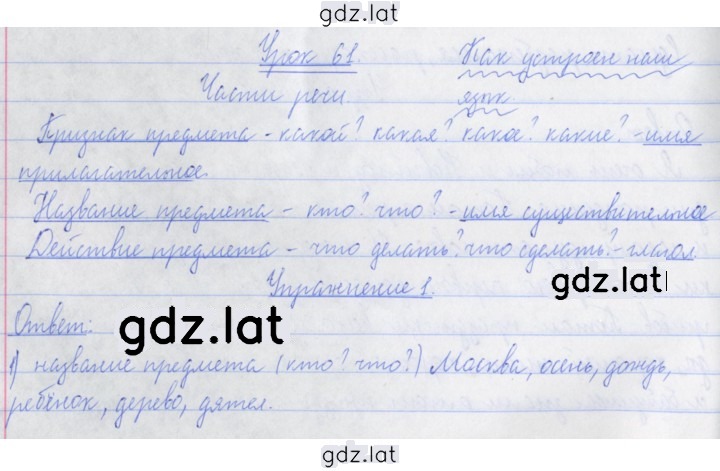 gdz.lat
Урок 61. Как устроен наш
Части речи. язык.
Признак предмета - какой? какая? какое? какие? - имя
прилагательное.
Название предмета - кто? что? - имя существительное
Действие предмета - что делать? что сделать? - глагол.
Упражнение 1. gdz.lat
Ответ: gdz.lat
1) название предмета (кто? что?) Москва, осень, дождь,
ребёнок, дерево, дятел.
gdz.lat